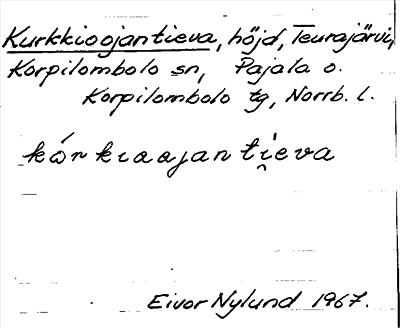 Kurkkioojantieva, höjd, Teurajärvi,
Korpilombolo sn, Pajala o.
Korpilombolo tg, Norrb. l.
kúrkıaajantı̯eva
Eivor Nylund 1967.